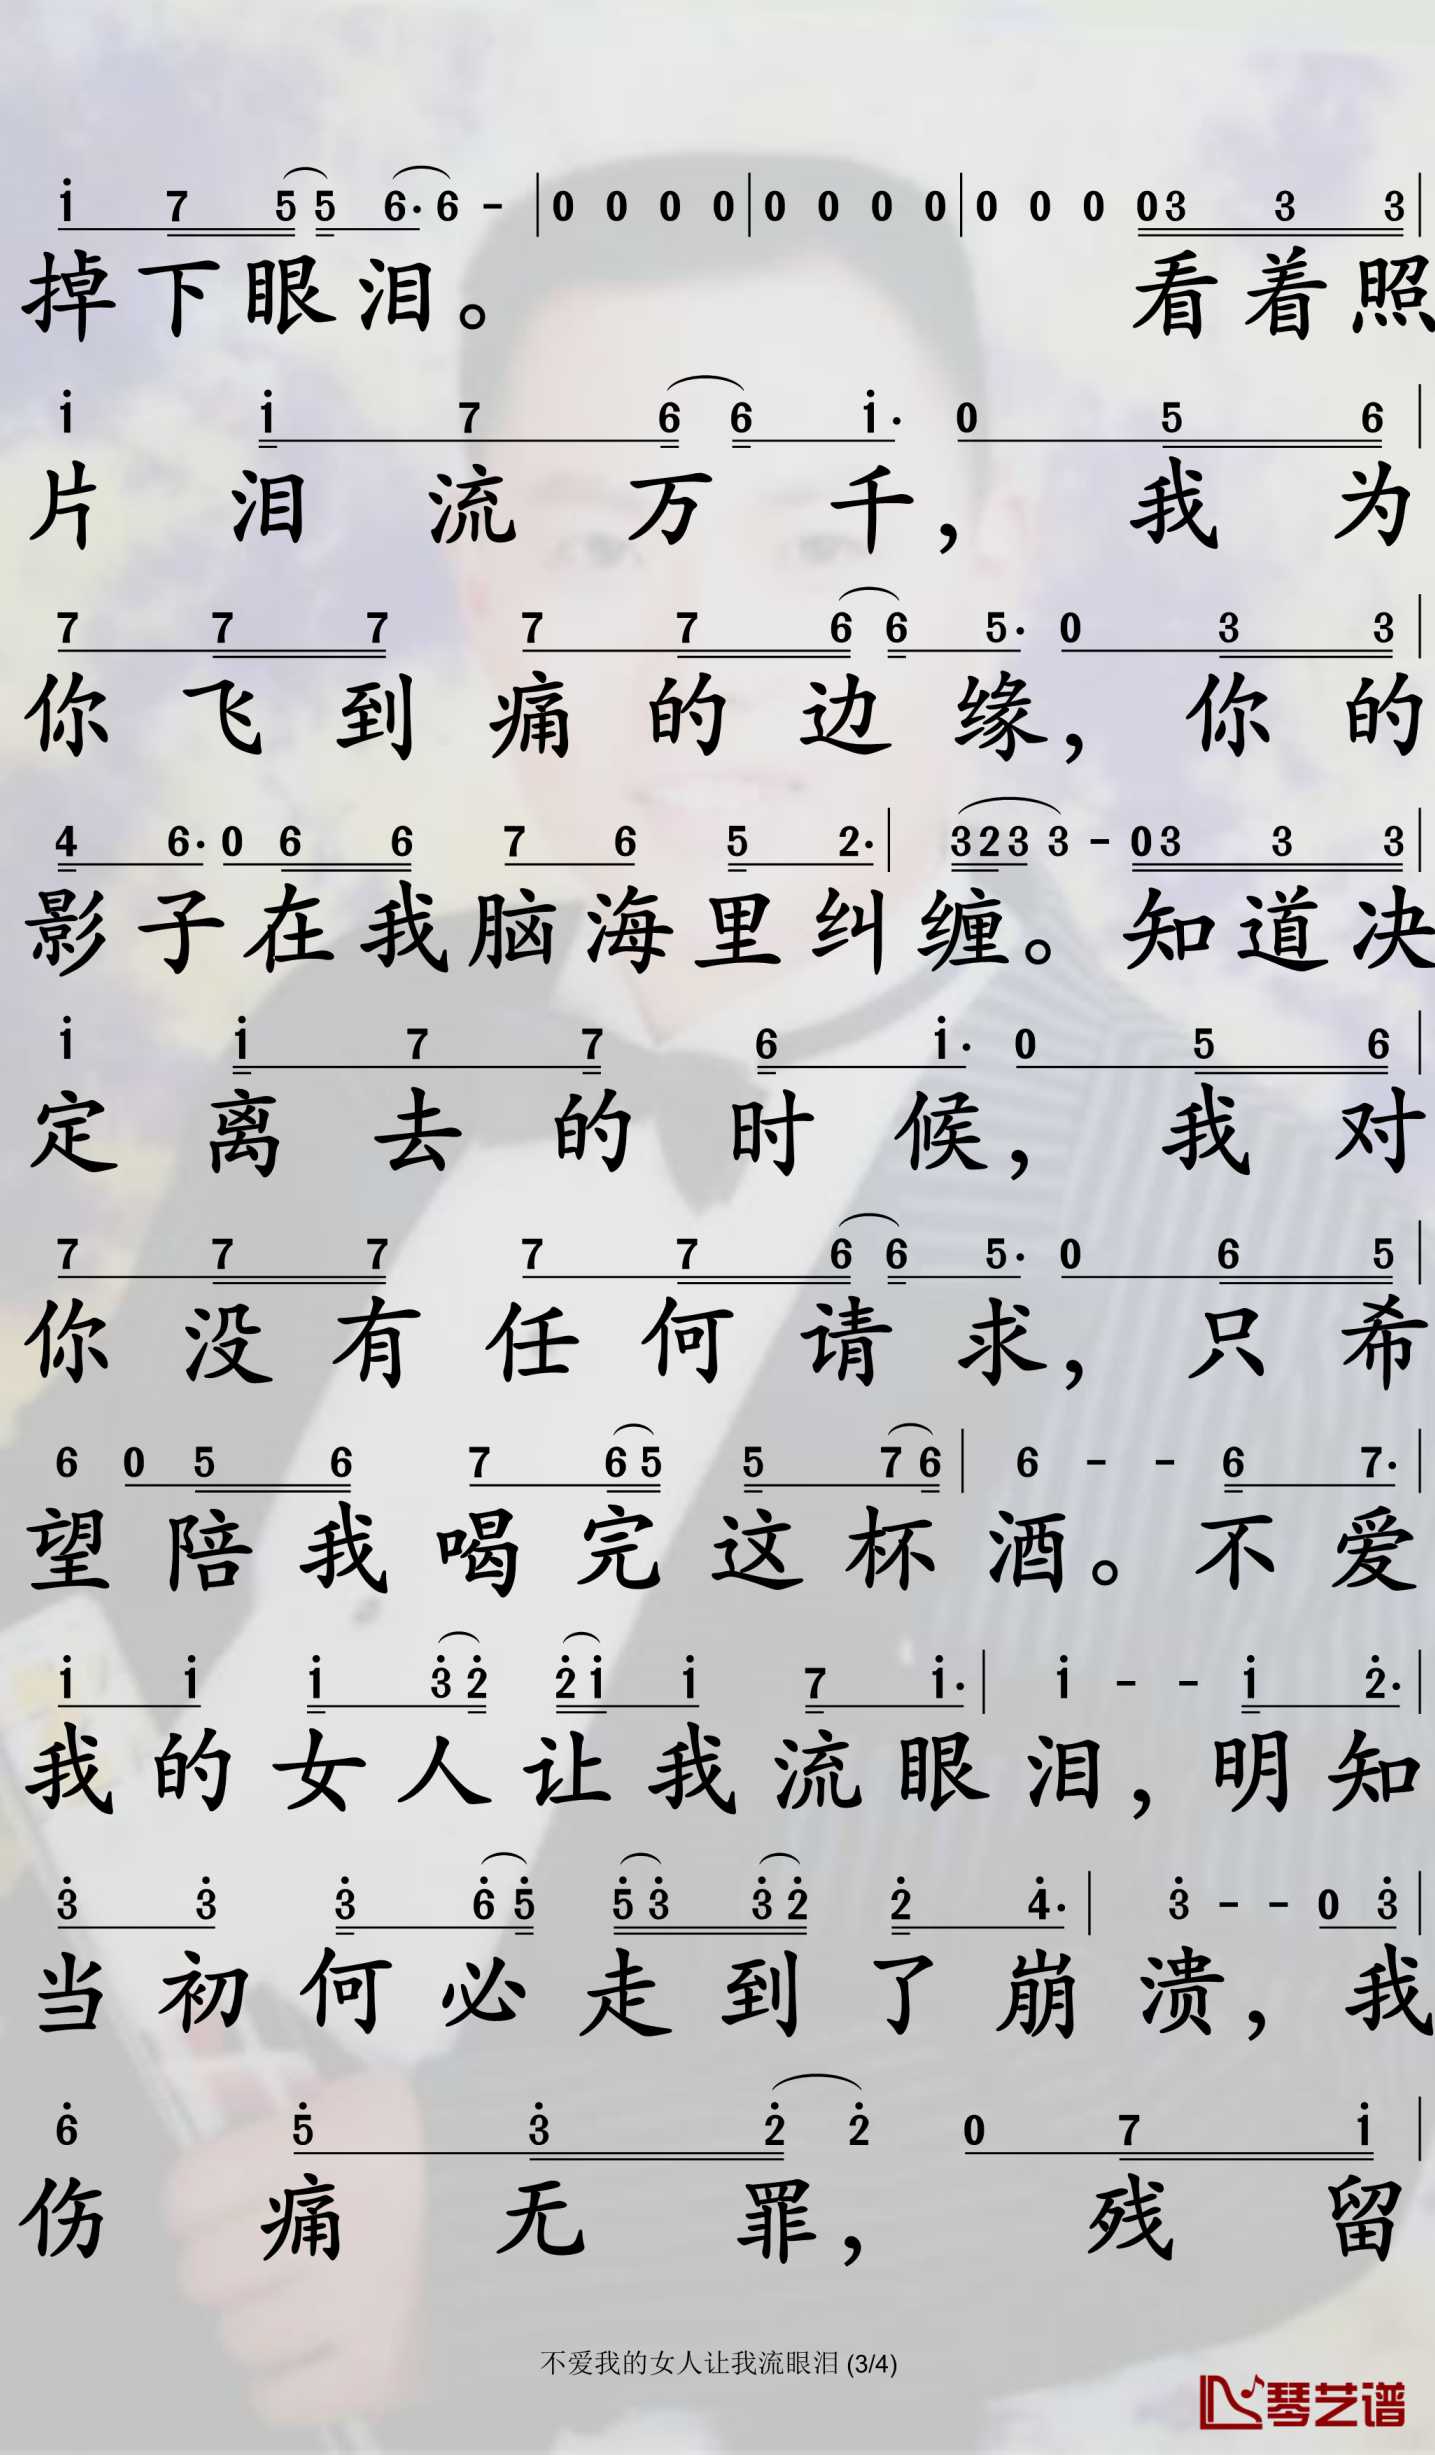 i 7 5 5 6. 6 - | 0 0 0 0 | 0 0 0 0 | 0 0 0 0 3 3 3 |
掉下眼泪。 看着照
i i 7 6 6 i. 0 5 6 |
片泪流万千，我为
7 7 7 7 7 6 6 5. 0 3 3 |
你飞到痛的边缘，你的
4 6. 0 6 6 7 6 5 2. | 3 2 3 3 - 0 3 3 3 |
影子在我脑海里纠缠。知道决
i i 7 7 6 i. 0 5 6 |
定离去的时候，我对
7 7 7 7 7 6 6 5. 0 6 5 |
你没有任何请求，只希
6 0 5 6 7 6 5 5 7 6 | 6 - - 6 7. |
望陪我喝完这杯酒。不爱
i i i 3̇ 2̇ 2̇ i i 7 i. | i - - i 2̇. |
我的女人让我流眼泪，明知
3̇ 3̇ 3̇ 6̇ 5̇ 5̇ 3̇ 3̇ 2̇ 2̇ 4̇. | 3̇ - - 0 3̇ |
当初何必走到了崩溃，我
6̇ 5̇ 3̇ 2̇ 2̇ 0 7 i |
伤痛无罪，残留
不爱我的女人让我流眼泪 (3/4)
琴艺谱